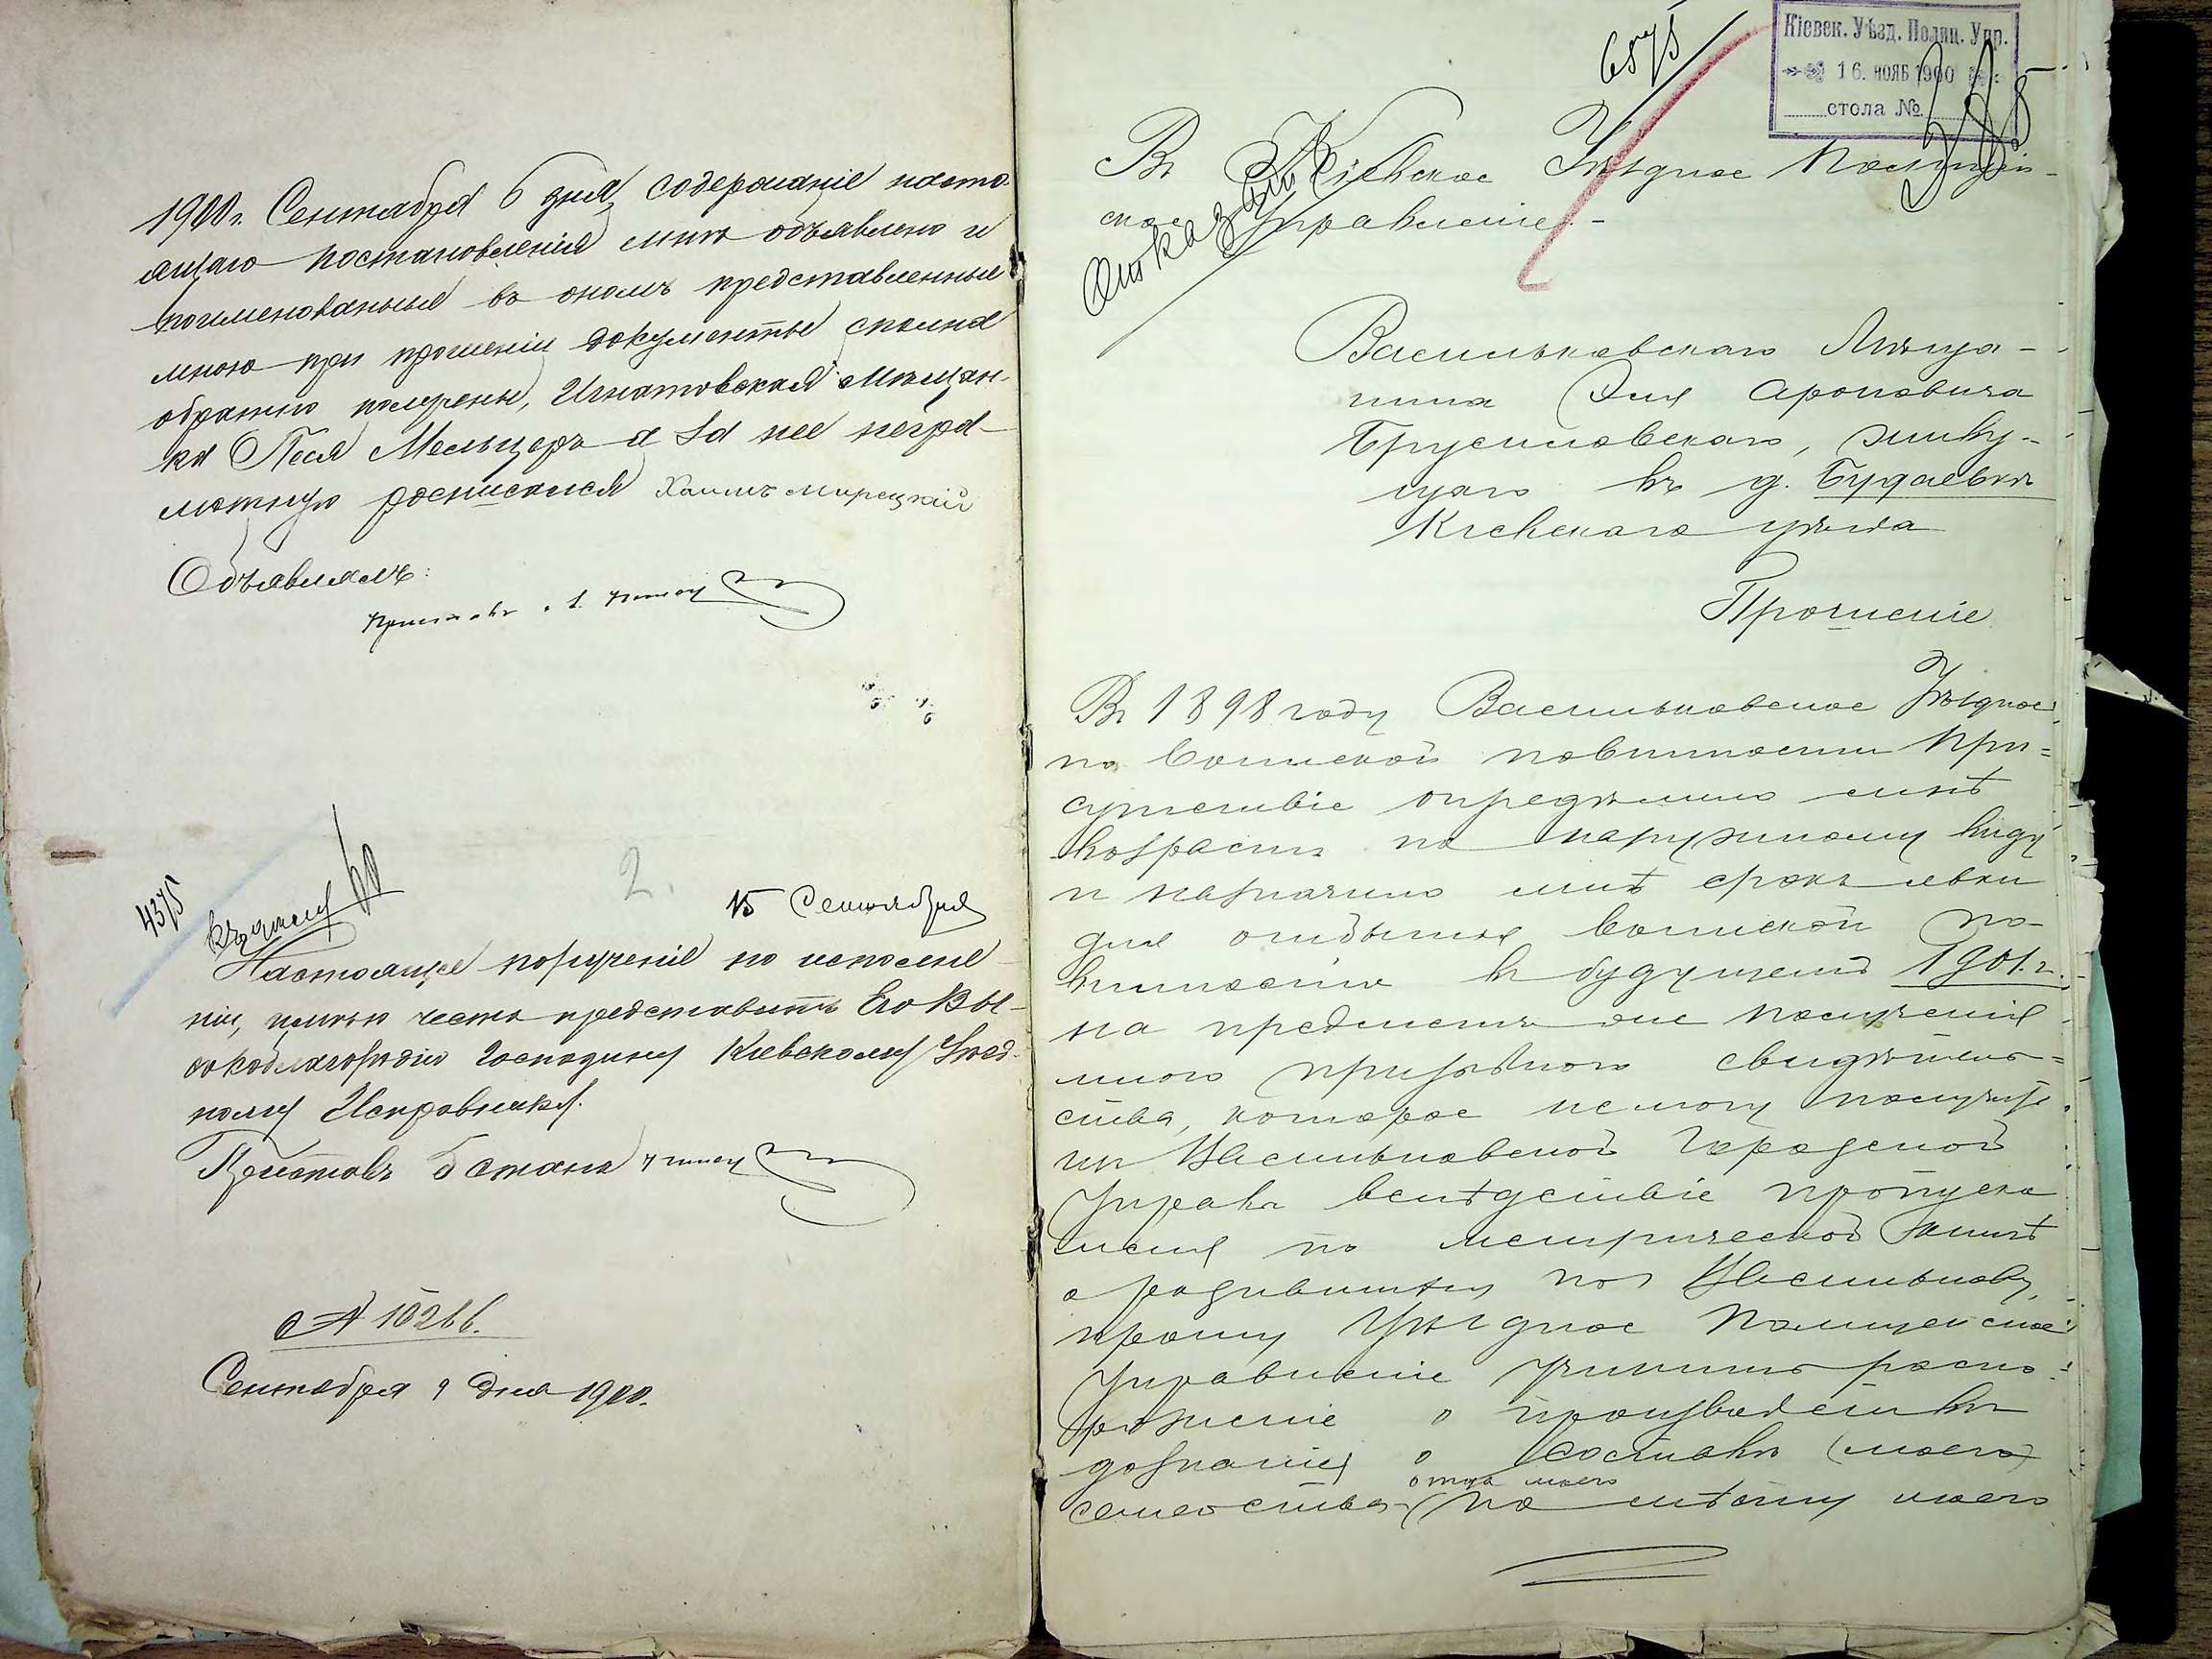 1900 г. Сентября 6 дня, содержаніе насто-
ящаго постановленія мнѣ объявлено и
поименованные въ ономъ представленные
мною при прошеніи документы сполна
обратно получены, Игнатовская мѣщан-
ка Песя Мельцеръ а за нее негра-
мотную росписался Хаимъ Мирецкій
Объявилъ:
Приставъ
4375
2.
15 Сентября
Настоящее порученіе по исполне-
ніи, имѣю честь представить Его Вы-
сокоблагородію Господину Кіевскому Уѣзд-
ному Исправнику.
Приставъ 5 стана
№ 10266.
Сентября 9 дня 1900.
6575
Кіевск. Уѣзд. Полиц. Упр.
16. НОЯБ 1900
стола №
Въ Кіевское Уѣздное Полицей-
ское Управленіе.-
Васильковскаго Мѣща-
нина Эля Ароновича
Брусиловскаго, живу-
щаго въ д. Будаевкѣ
Кіевскаго уѣзда
Прошеніе
Въ 1898 году Васильковское Уѣздное
по воинской повинности При=
сутствіе опредѣлило мнѣ
возрастъ по наружному виду
и назначило мнѣ срокъ явки
для отбытія воинской по-
винности въ будущемъ 1901 г.
на предметъ же полученія
мною призывного свидѣтель=
ства, которое не могу получи
въ Васильковской Городской
Управѣ вслѣдствіе пропуска
меня по метрической книгѣ
о родившихся по г. Василькову,
прошу Уѣздное Полицейское
Управленіе учинить распо-
ряженіе о производствѣ
дознанія о составѣ (моего)
отца моего
семейства (по смѣту моего